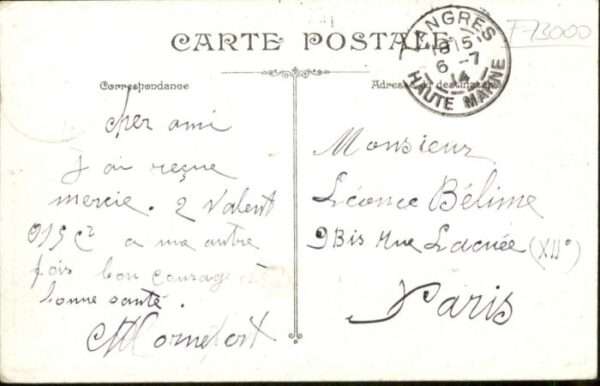 CARTE POSTALE
LANGRES
1815
6 -7
14
HAUTE MARNE
F-13000
Correspondance
Adresse du destinataire
cher ami
j ai reçue
mercie. 2 Valent
015 c² a ma autre
fois bon courage et
bonne santé.
Monsieur
Léonce Bélime
9 Bis Rue Lacuée (XIIe)
Paris